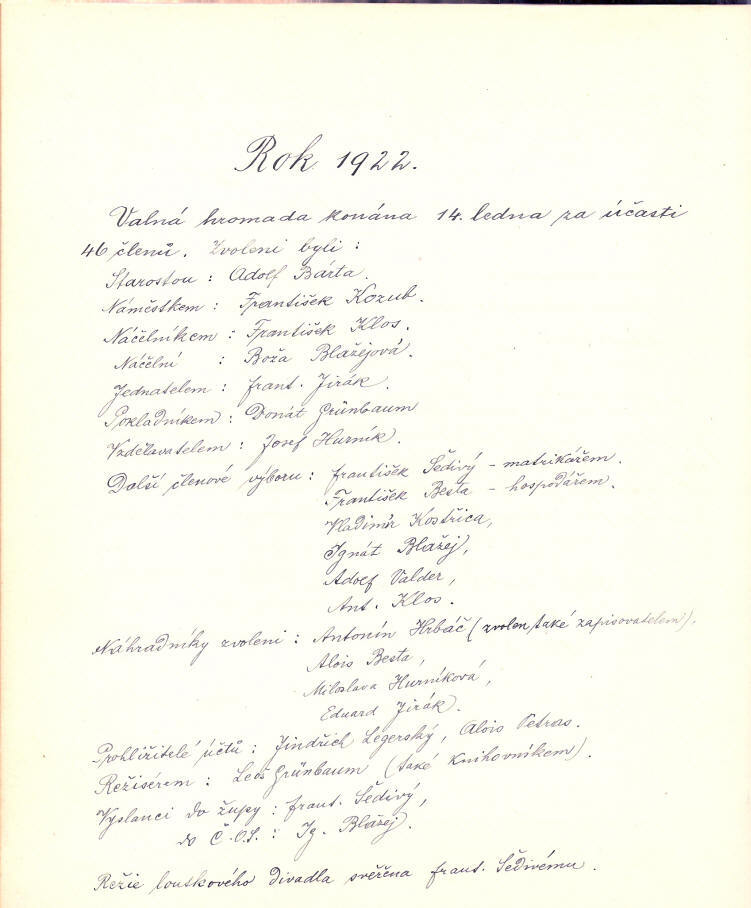 Rok 1922.
Valná hromada konána 14. ledna za účasti
46 členů. Zvoleni byli :
Starostou : Adolf Bárta.
Náměstkem : František Kozub.
Náčelníkem : František Klos.
Náčelní : Boža Blažejová.
Jednatelem : frant. Jirák.
Pokladníkem : Donát Grünbaum
Vzdělavatelem : Josef Hurník.
Další členové výboru : františek Šedivý - matrikářem.
František Besta - hospodářem.
Vladimír Kostřica,
Ignát Blažej,
Adolf Valder,
Ant. Klos.
Náhradníky zvoleni : Antonín Hrbáč (zvolen také zapisovatelem).
Alois Besta,
Miloslava Hurníková,
Eduard Jirák.
Prohlížitelé účtů : Jindřich Legerský, Alois Petras.
Režisérem : Leoš Grünbaum (také knihovníkem).
Vyslanci do župy : frant. Šedivý,
do Č.O.S. : Ig. Blažej.
Režie loutkového divadla svěřena frant. Šedivému.